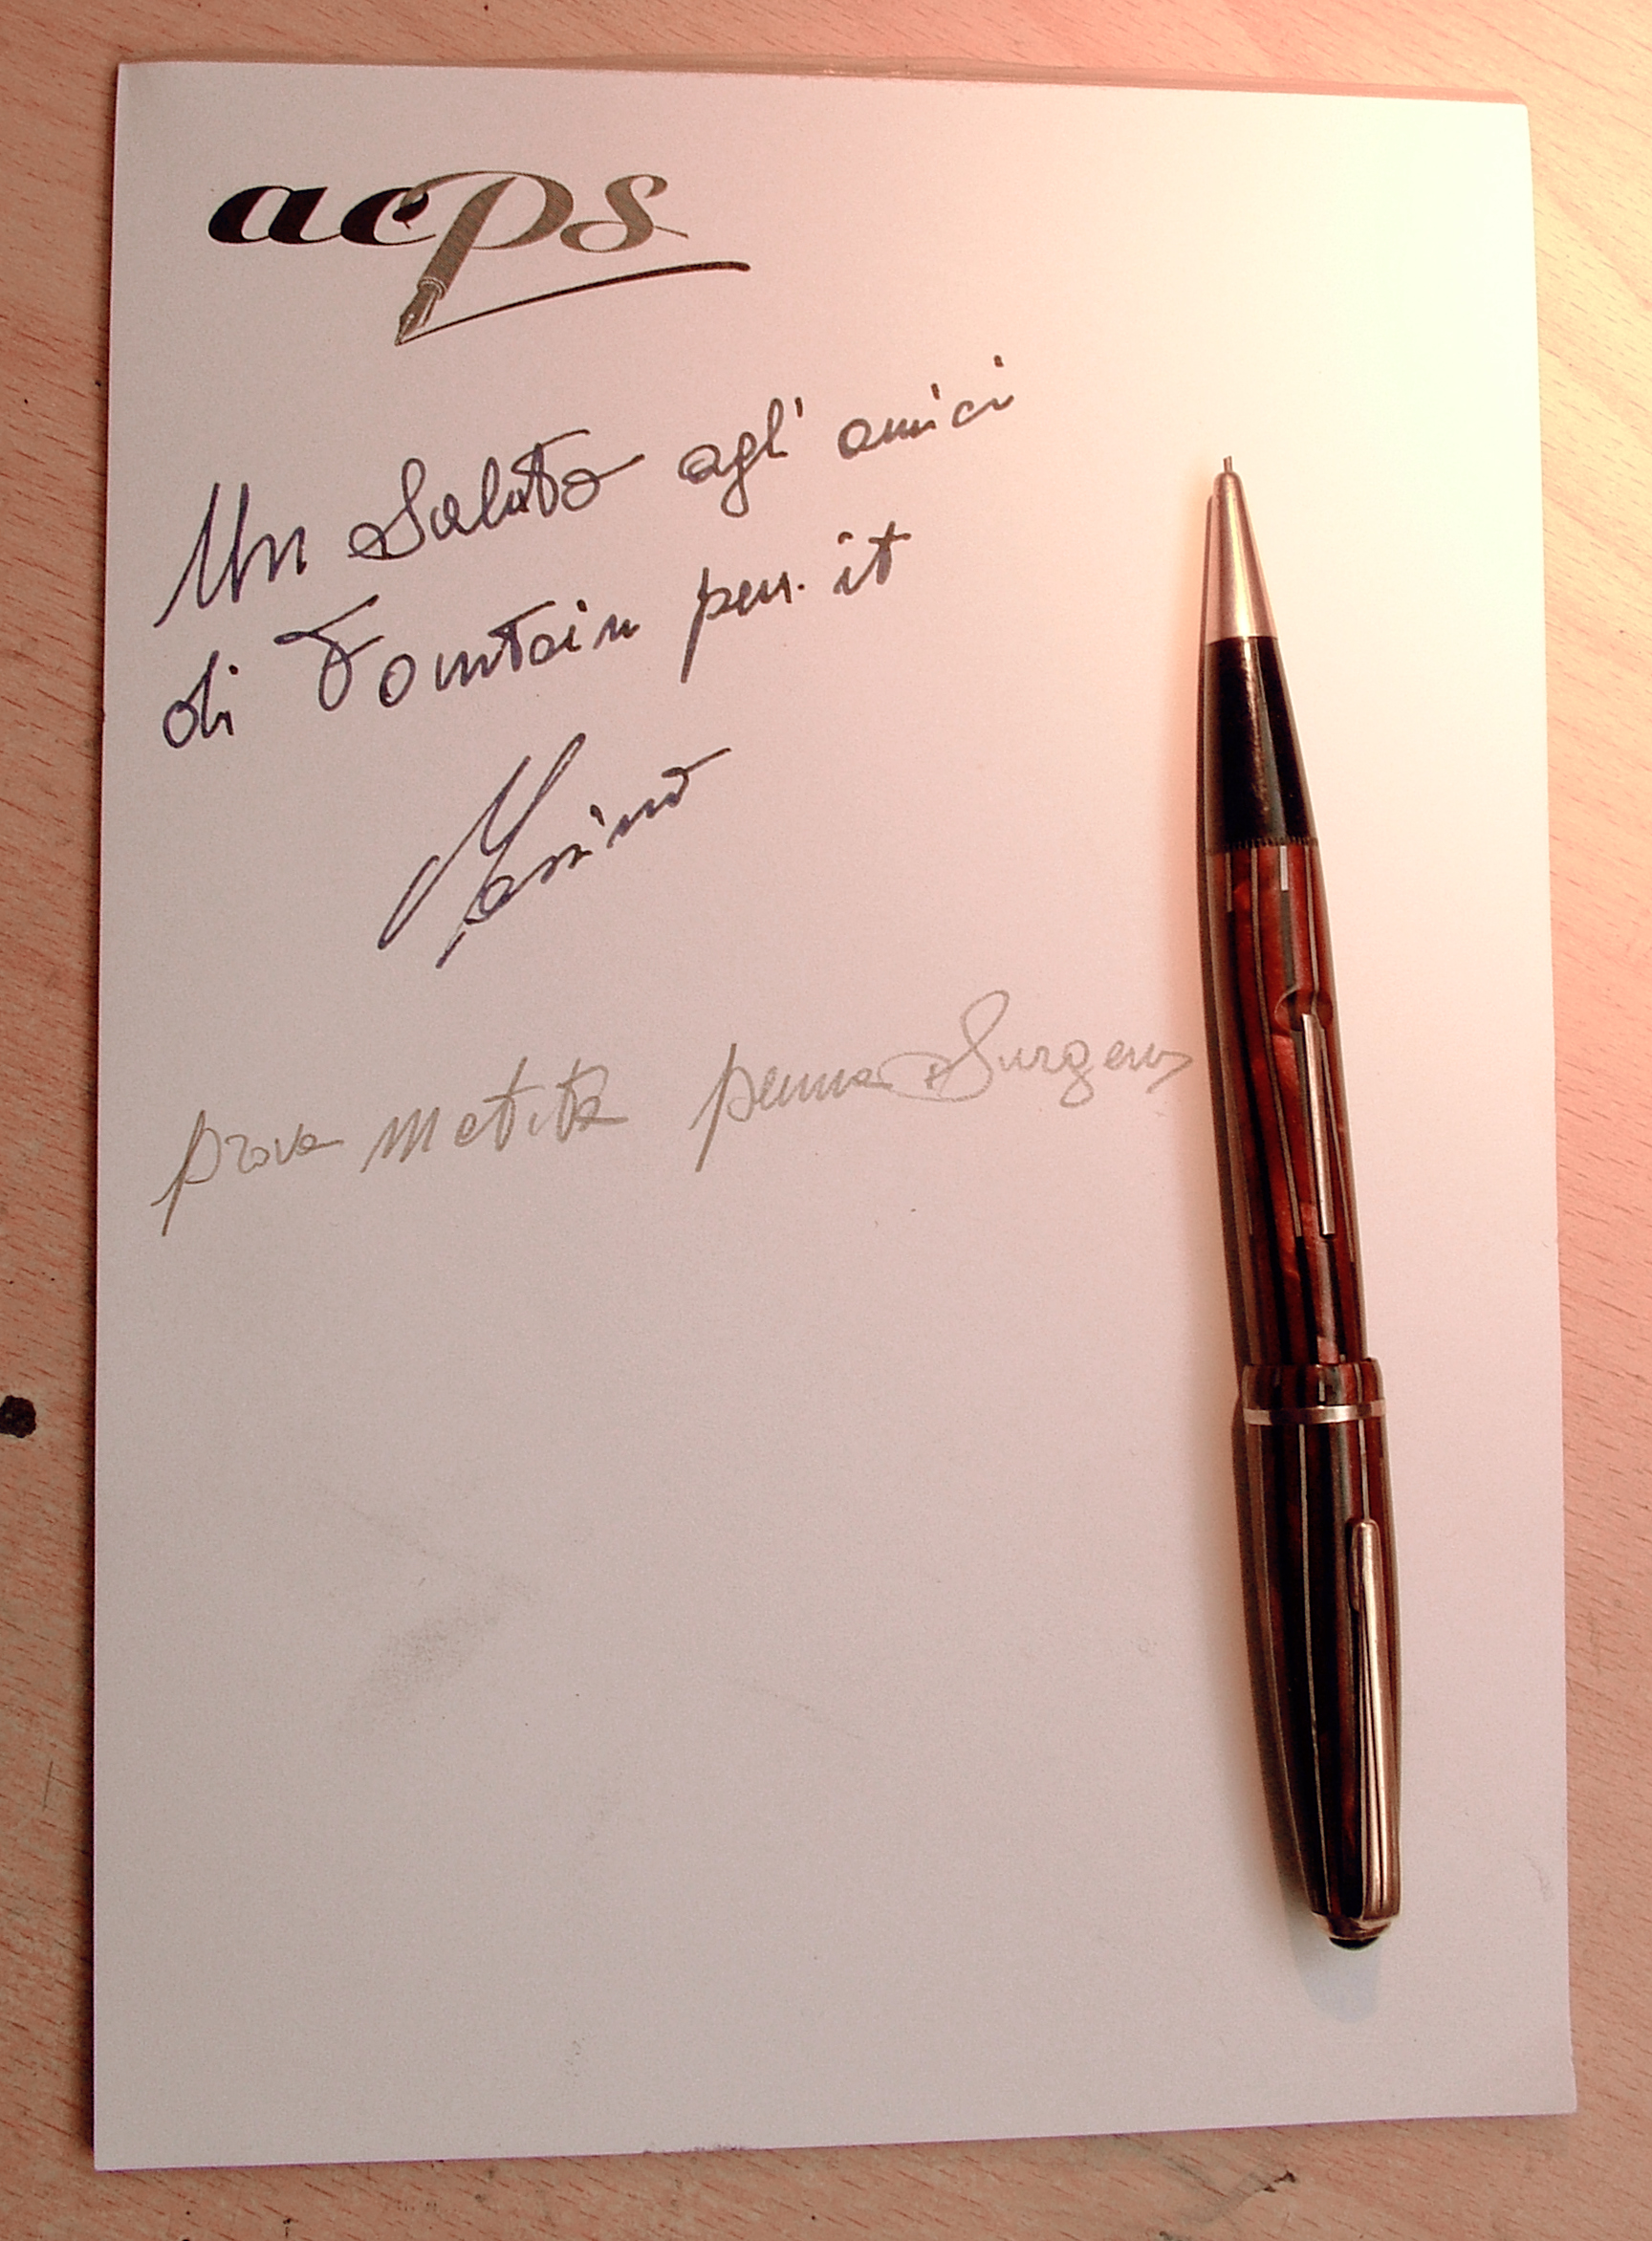 acps
Un Saluto agli amici
di Fountain pen.it
Massimo
prova Matita penna Surgens